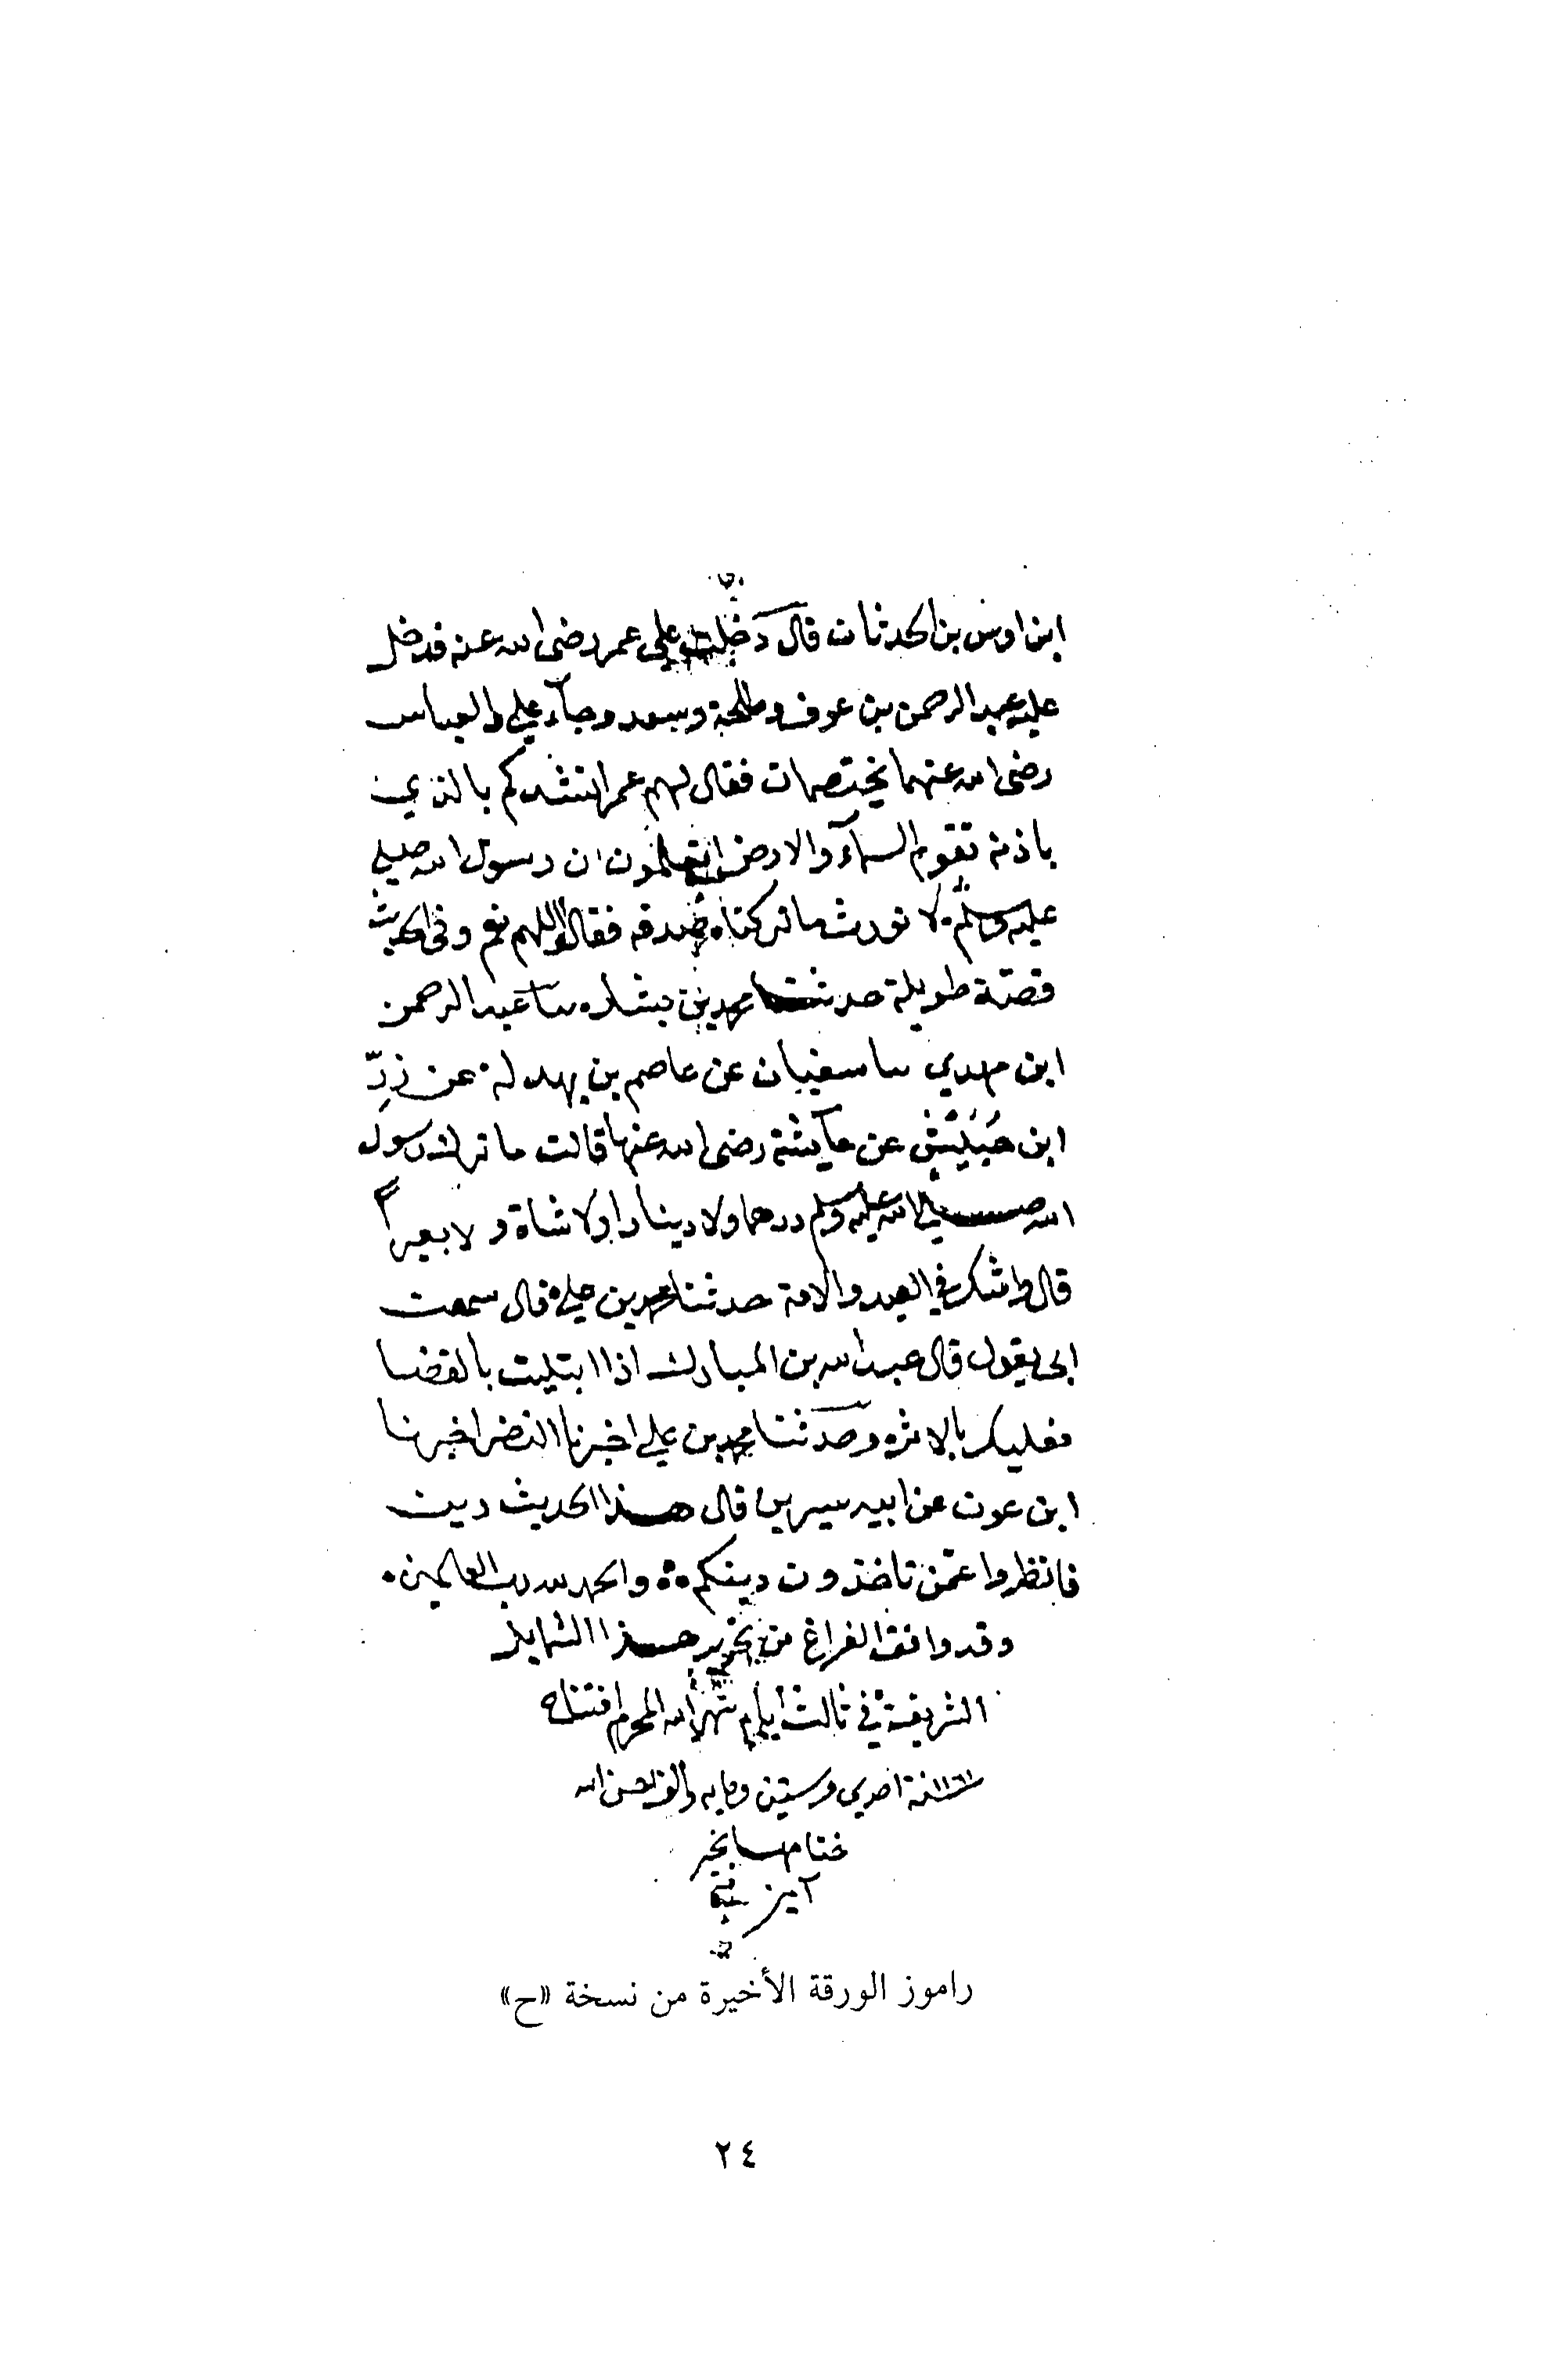 ابن اوس بن الحدثان قال دخلت على عمر رضى الله عنه فدخل
عليه عبد الرحمن بن عوف وطلحة وسعد وجآء على والعباس
رضى الله عنهما يختصمان فقال لهم عمر انشدكم بالذي
باذنه تقوم السمآء والارض اتعلمون ان رسول الله صلى
عليه وسلم لا نورث ما تركناه صدقه فقالوا اللهم نعم وفى الحديث
قصة طويلة حدثنا محمد بن بشار ثنا عبد الرحمن
ابن مهدي ثنا سفيان عن عاصم بن بهدلة عن زِرّ
ابن حُبَيْش عن عآيشة رضى الله عنها قالت ما ترك رسول
الله صلى الله عليه وسلم درهما ولا دينارا ولا شاة ولا بعيراً
قال واشك في العبد والامة حدثنا محمد بن علي قال سمعت
ابى يقول قال عبد الله بن المبارك اذا ابتليت بالقضا
فعليك بالاثر وحدثنا محمد بن علي اخبرنا النضر اخبرنا
ابن عون عن ابيه سيرين قال هذا الحديث دين
فانظروا عمّن تاخذون دينكم والحمد لله رب العالمين
وقد وافق الفراغ من تحرير هذا الشمايل
الشريفة في ثالث ايام شهر الله المحرم افتتاح
سنة ١١٦١ احدي وستين ومايه والف احسن الله
ختامها بخير
آمين
راموز الورقة الأخيرة من نسخة «ح»
٢٤